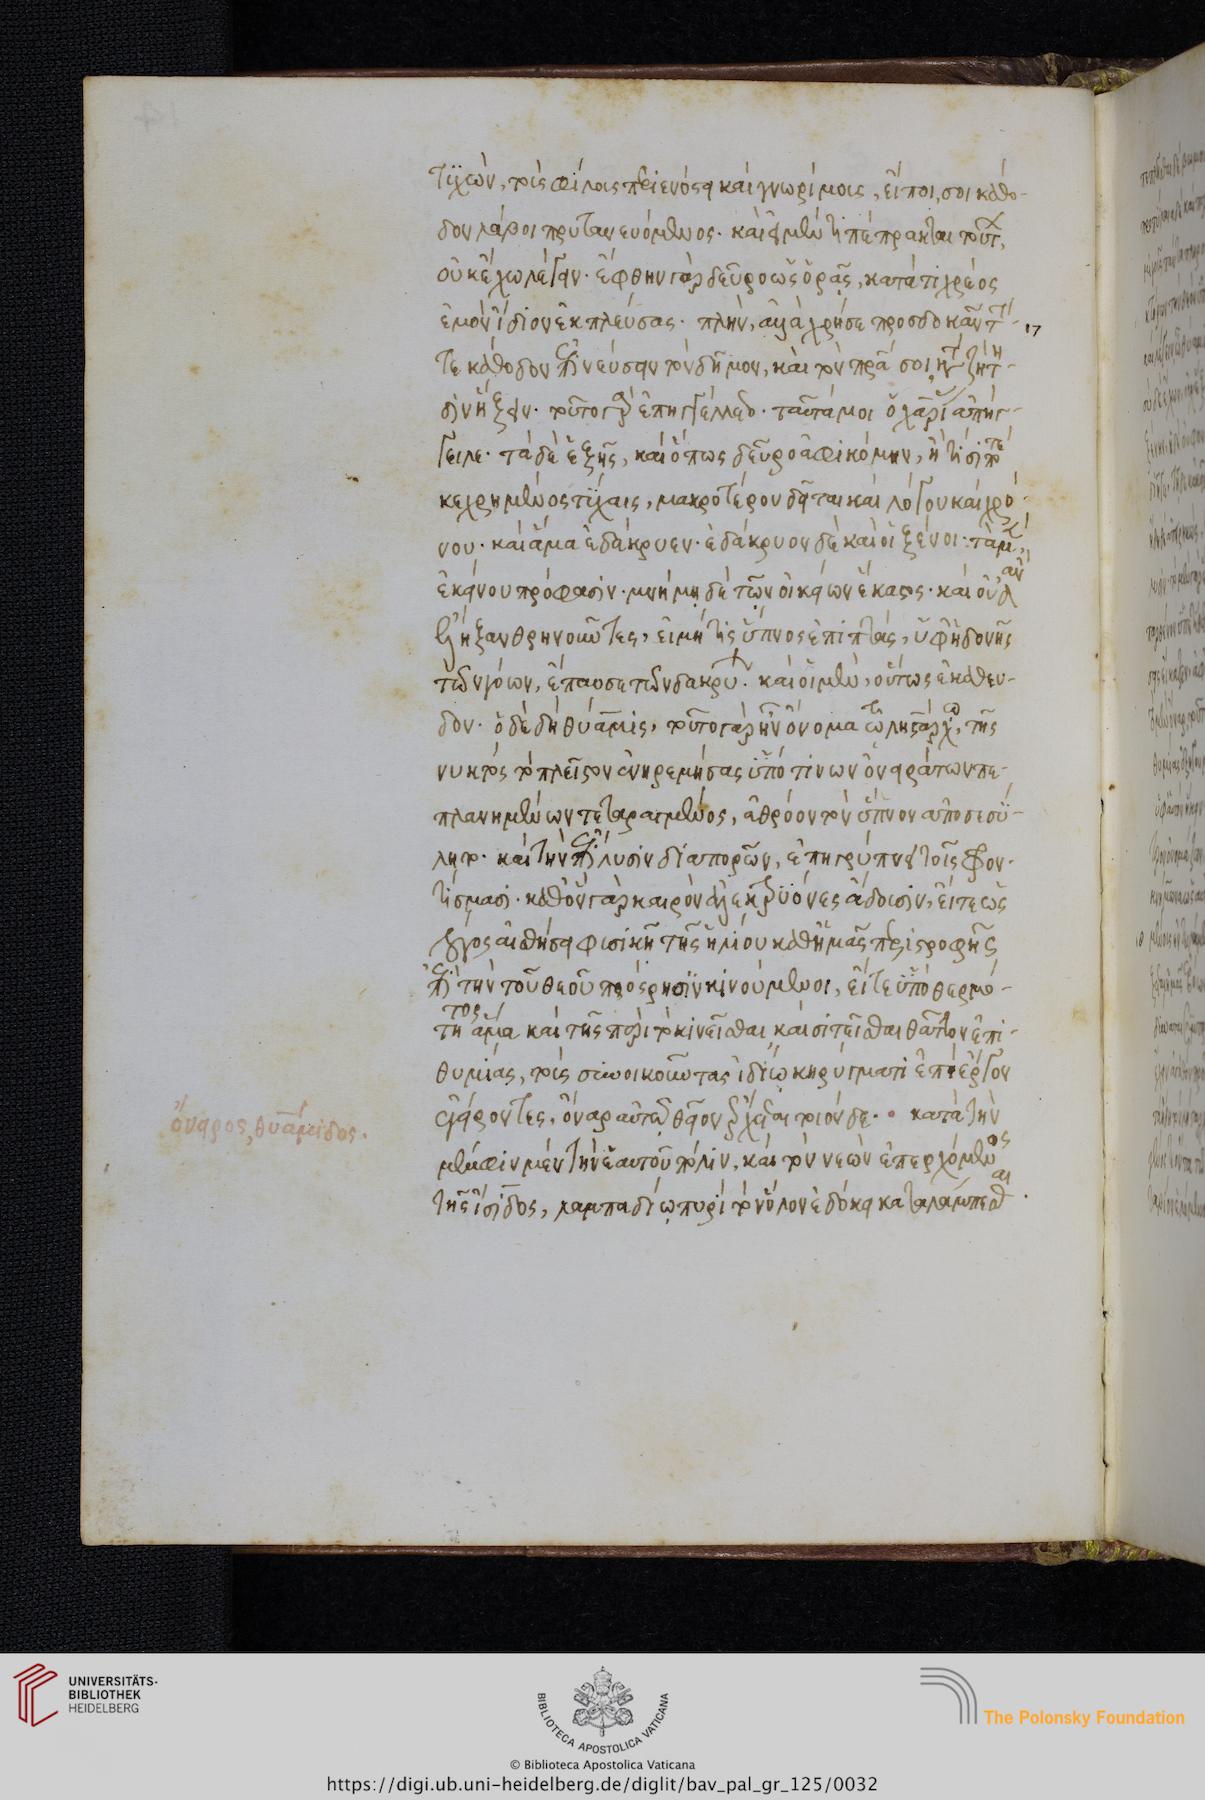 τυχὼν, τοῖς φίλοις περιενόστει καὶ γνωρίμοις, εἴ ποι σοι κάθο-
δον λάβοι πρυτανευόμενος. καὶ ἐμοὶ μέντι πέπρακται τοῦτο,
οὐκ ἐχωλεῖσαν. ἔφθην γὰρ δεῦρο ὡς ὁρᾶς, κατά τι χρέος
ἐμὸν ἴδιον ἐκπλεύσας. πλὴν, ἀλλὰ χρή σε προσδοκᾶν τὴν 17
τε κάθοδον ἐπινεύσειν τὸν δῆμον, καὶ τὸν πατέρα σοι κατὰ ζήτη-
σιν ἥξειν. τοῦτο γὰρ ἐπηγγέλλετο. ταῦτά μοι ὁ χαρίας ἀπήγ-
γειλε. τὰ δὲ ἑξῆς, καὶ ὅπως δεῦρο ἀφικόμην, ἢ τίσι ποτὲ
κεχρημένος τύχαις, μακροτέρου δεῖται καὶ λόγου καὶ χρό-
νου. καὶ ἅμα ἐδάκρυεν. ἐδάκρυον δὲ καὶ οἱ ξένοι. τὰ μὲν,
ἐκείνου πρόφασιν. μνήμῃ δὲ τῶν οἰκείων ἕκαστος. καὶ οὐδ ἂν
ἔληξαν θρηνοῦντες, εἰ μή τις ὕπνος ἐπιπτὰς, ὑφ ἡδονῆς
τῶν γόων, ἔπαυσε τῶν δακρύων. καὶ οἱ μὲν, οὕτως ἐκάθευ-
δον. ὁ δὲ δὴ θύαμις, τοῦτο γὰρ ἦν ὄνομα τῷ ληστάρχῳ, τῆς
νυκτὸς τὸ πλεῖστον ἠρεμήσας ὑπό τινων ὀνειράτων πε-
πλανημένων τεταραγμένος, ἀθρόον τὸν ὕπνον ἀποσεσύ-
λητο. καὶ τὴν ἐπίλυσιν διαπορῶν, ἐπηγρύπνει τοῖς φρον-
τίσμασι. καθ ὃν γὰρ καιρὸν ἀλεκτρυόνες ἄδουσιν, εἴτε ὡς
λόγος αἰσθήσει φυσικῇ τῆς ἡλίου καθ ἡμᾶς περιστροφῆς
ἐπὶ τὴν τοῦ θεοῦ πρόσρησιν κινούμενοι, εἴτε ὑπὸ θερμό-
τητος ἅμα καὶ τῆς περὶ τὸ κινεῖσθαι καὶ σιτεῖσθαι θᾶττον ἐπι-
θυμίας, τοὺς συνοικοῦντας ἰδίῳ κηρύγματι ἐπὶ ἔργον
ἐγείροντες, ὄναρ αὐτῷ θεῖον ἔρχεται τοιόνδε. κατὰ τὴν
μέμφιν μὲν τὴν ἑαυτοῦ πόλιν, καὶ τὸν νεὼν ἐπερχόμενος
τῆς ἴσιδος, λαμπαδίῳ πυρὶ τὸν ὅλον ἐδόκει καταλάμπεσθαι.
ὄνειρος θυάμιδος.
UNIVERSITÄTS-
BIBLIOTHEK
HEIDELBERG
BIBLIOTECA APOSTOLICA VATICANA
The Polonsky Foundation
© Biblioteca Apostolica Vaticana
https://digi.ub.uni-heidelberg.de/diglit/bav_pal_gr_125/0032